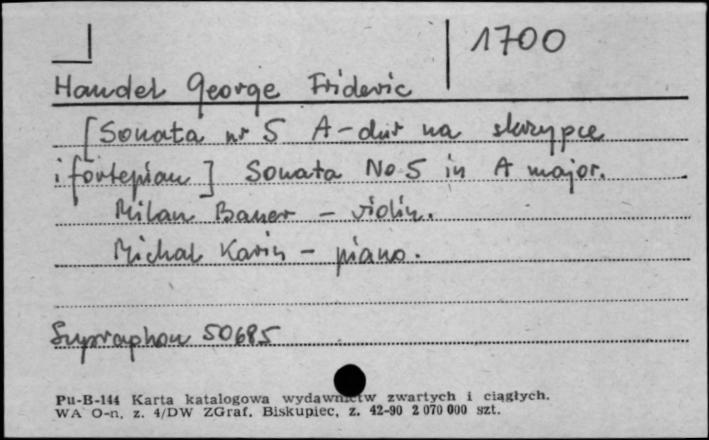 1700
Handel George Frideric
[Sonata nr 5 A-dur na skrzypce
i fortepian] Sonata No 5 in A major.
Milan Bauer - violin.
Michal Karin - piano.
Supraphon 50685
Pu-B-144 Karta katalogowa wydawnictw zwartych i ciągłych.
WA O-n. z. 4/DW ZGraf. Biskupiec, z. 42-90 2 070 000 szt.